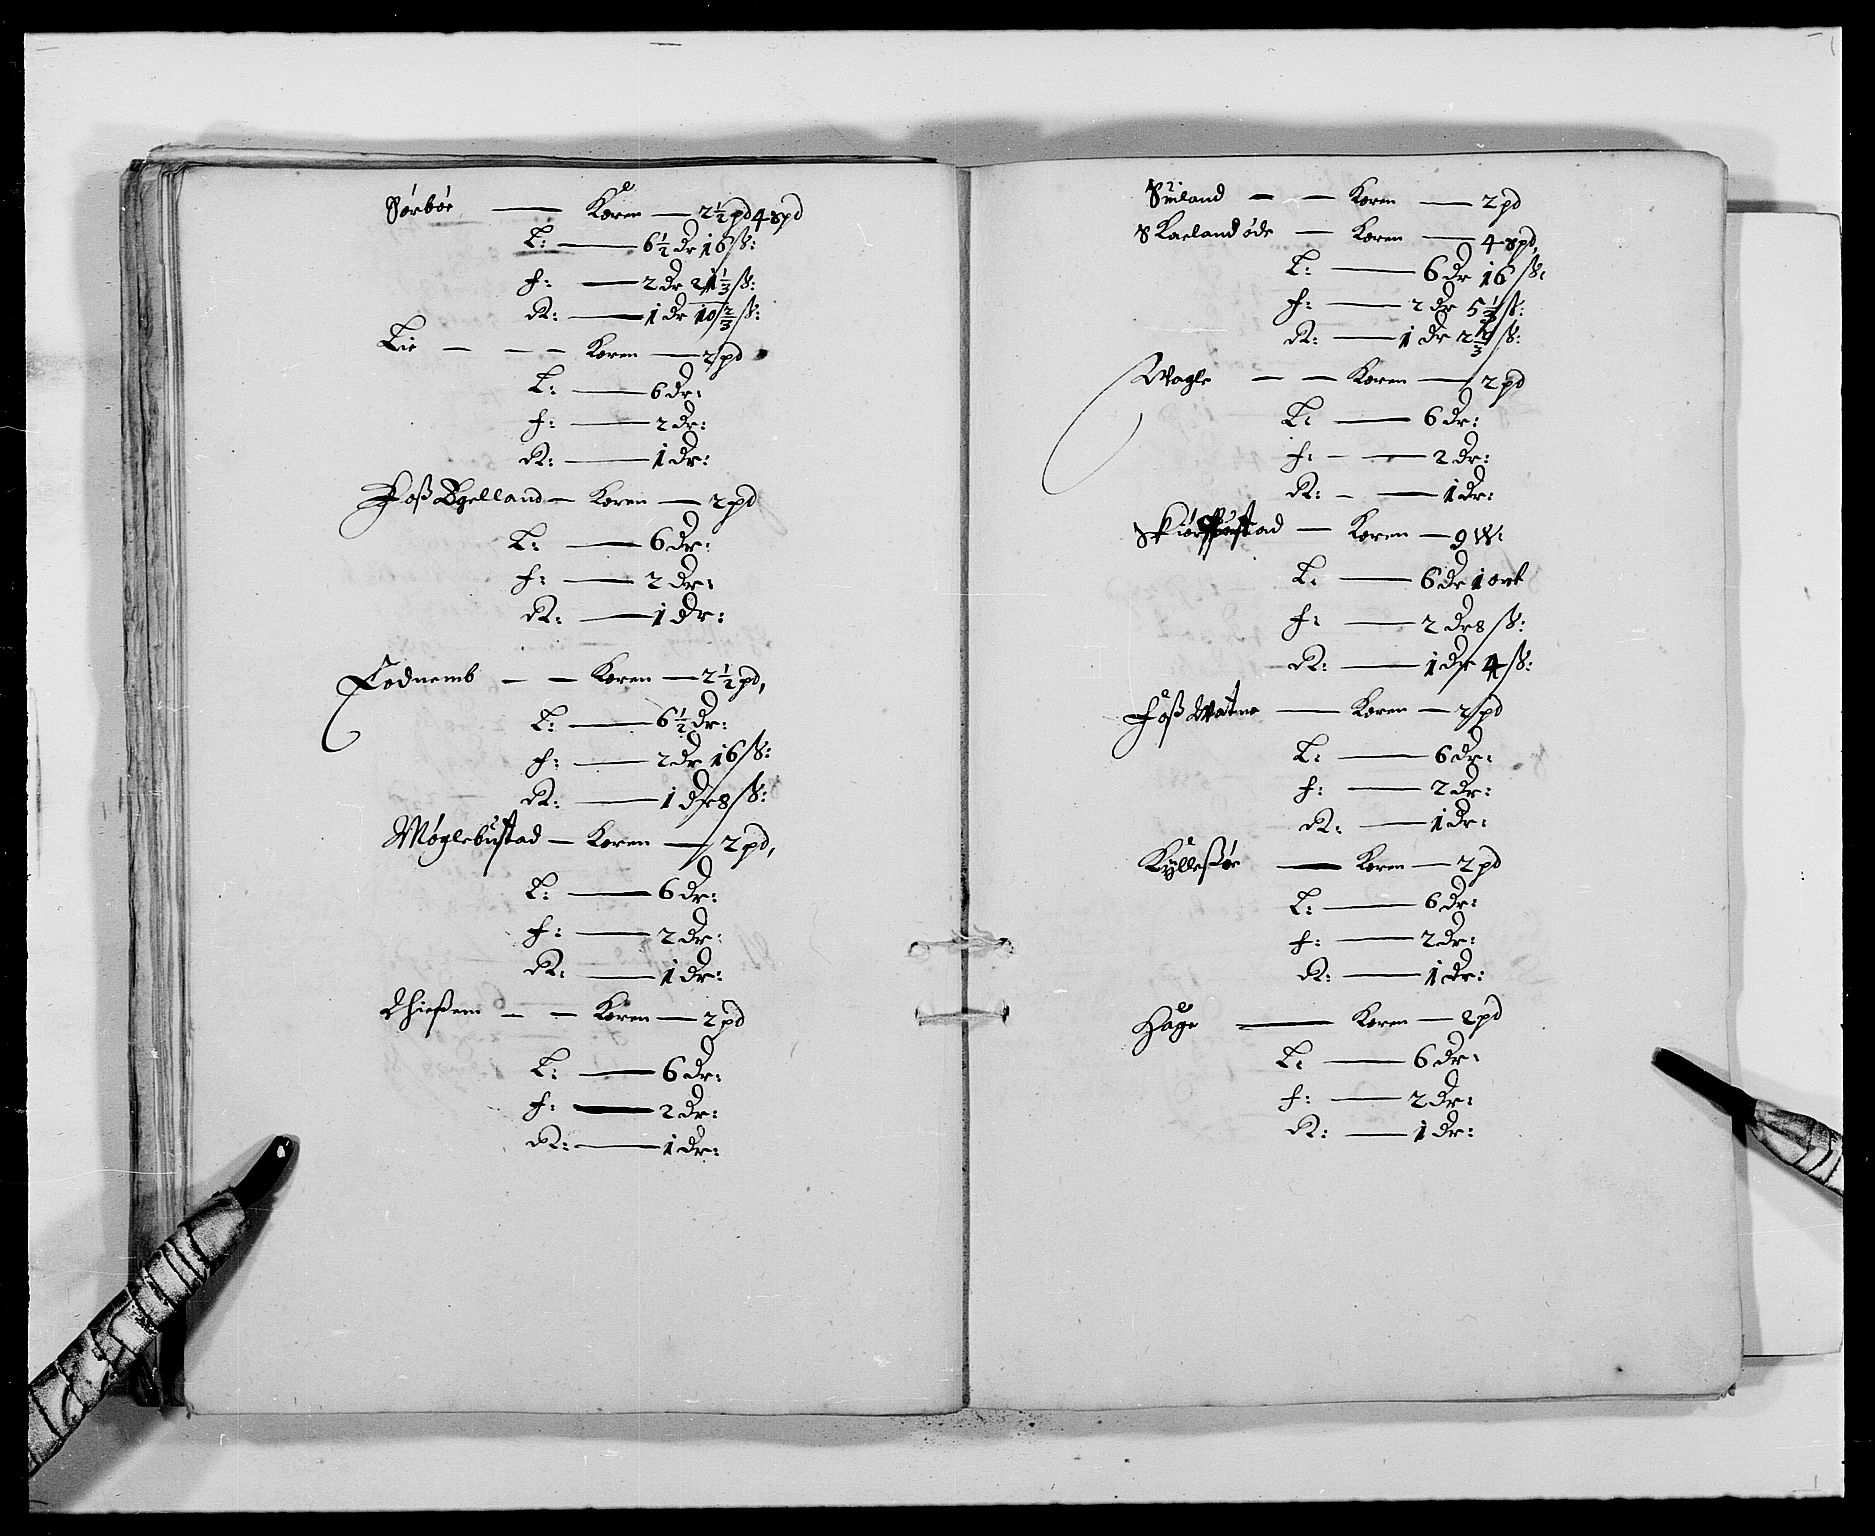 Sørbøe — Koren — 2½ pd 4 spd
L: — 6½ dr 16 ß:
f: — 2 dr 21⅓ ß:
R: — 1 dr 10⅔ ß:
Lie — — — Koren — 2 pd
L: — 6 dr:
f: — 2 dr:
R: — 1 dr:
Foß Egelland — Koren — 2 pd
L: — 6 dr:
f: — 2 dr:
R: — 1 dr:
Todnemb — — Koren — 2½ pd,
L: — 6½ dr:
f: — 2 dr 16 ß:
R: — 1 dr 8 ß:
Møglebustad — Koren — 2 pd,
L: — 6 dr:
f: — 2 dr:
R: — 1 dr:
Thießem — — Koren — 2 pd
L: — 6 dr:
f: — 2 dr:
R: — 1 dr:
Suiland — — Koren — 2 pd
Skaeland øde — Koren — 4 spd,
L: — 6 dr 16 ß:
f: — 2 dr 5⅓ ß:
R: — 1 dr 2⅔ ß:
Wagle — — Koren — 2 pd
L: — 6 dr:
f: — — 2 dr:
R: — — 1 dr:
Koren — 9 W:
L: — 6 dr 1 ort
f: — 2 dr 8 ß:
R: — 1 dr 4 ß:
Foß Watne — Koren — 2 pd
L: — 6 dr:
f: — 2 dr:
R: — 1 dr:
Kylleßøe — Koren — 2 pd
L: — 6 dr:
f: — 2 dr:
R: — 1 dr:
Hage — Koren — 2 pd
L: — 6 dr:
f: — 2 dr:
R: — 1 dr: